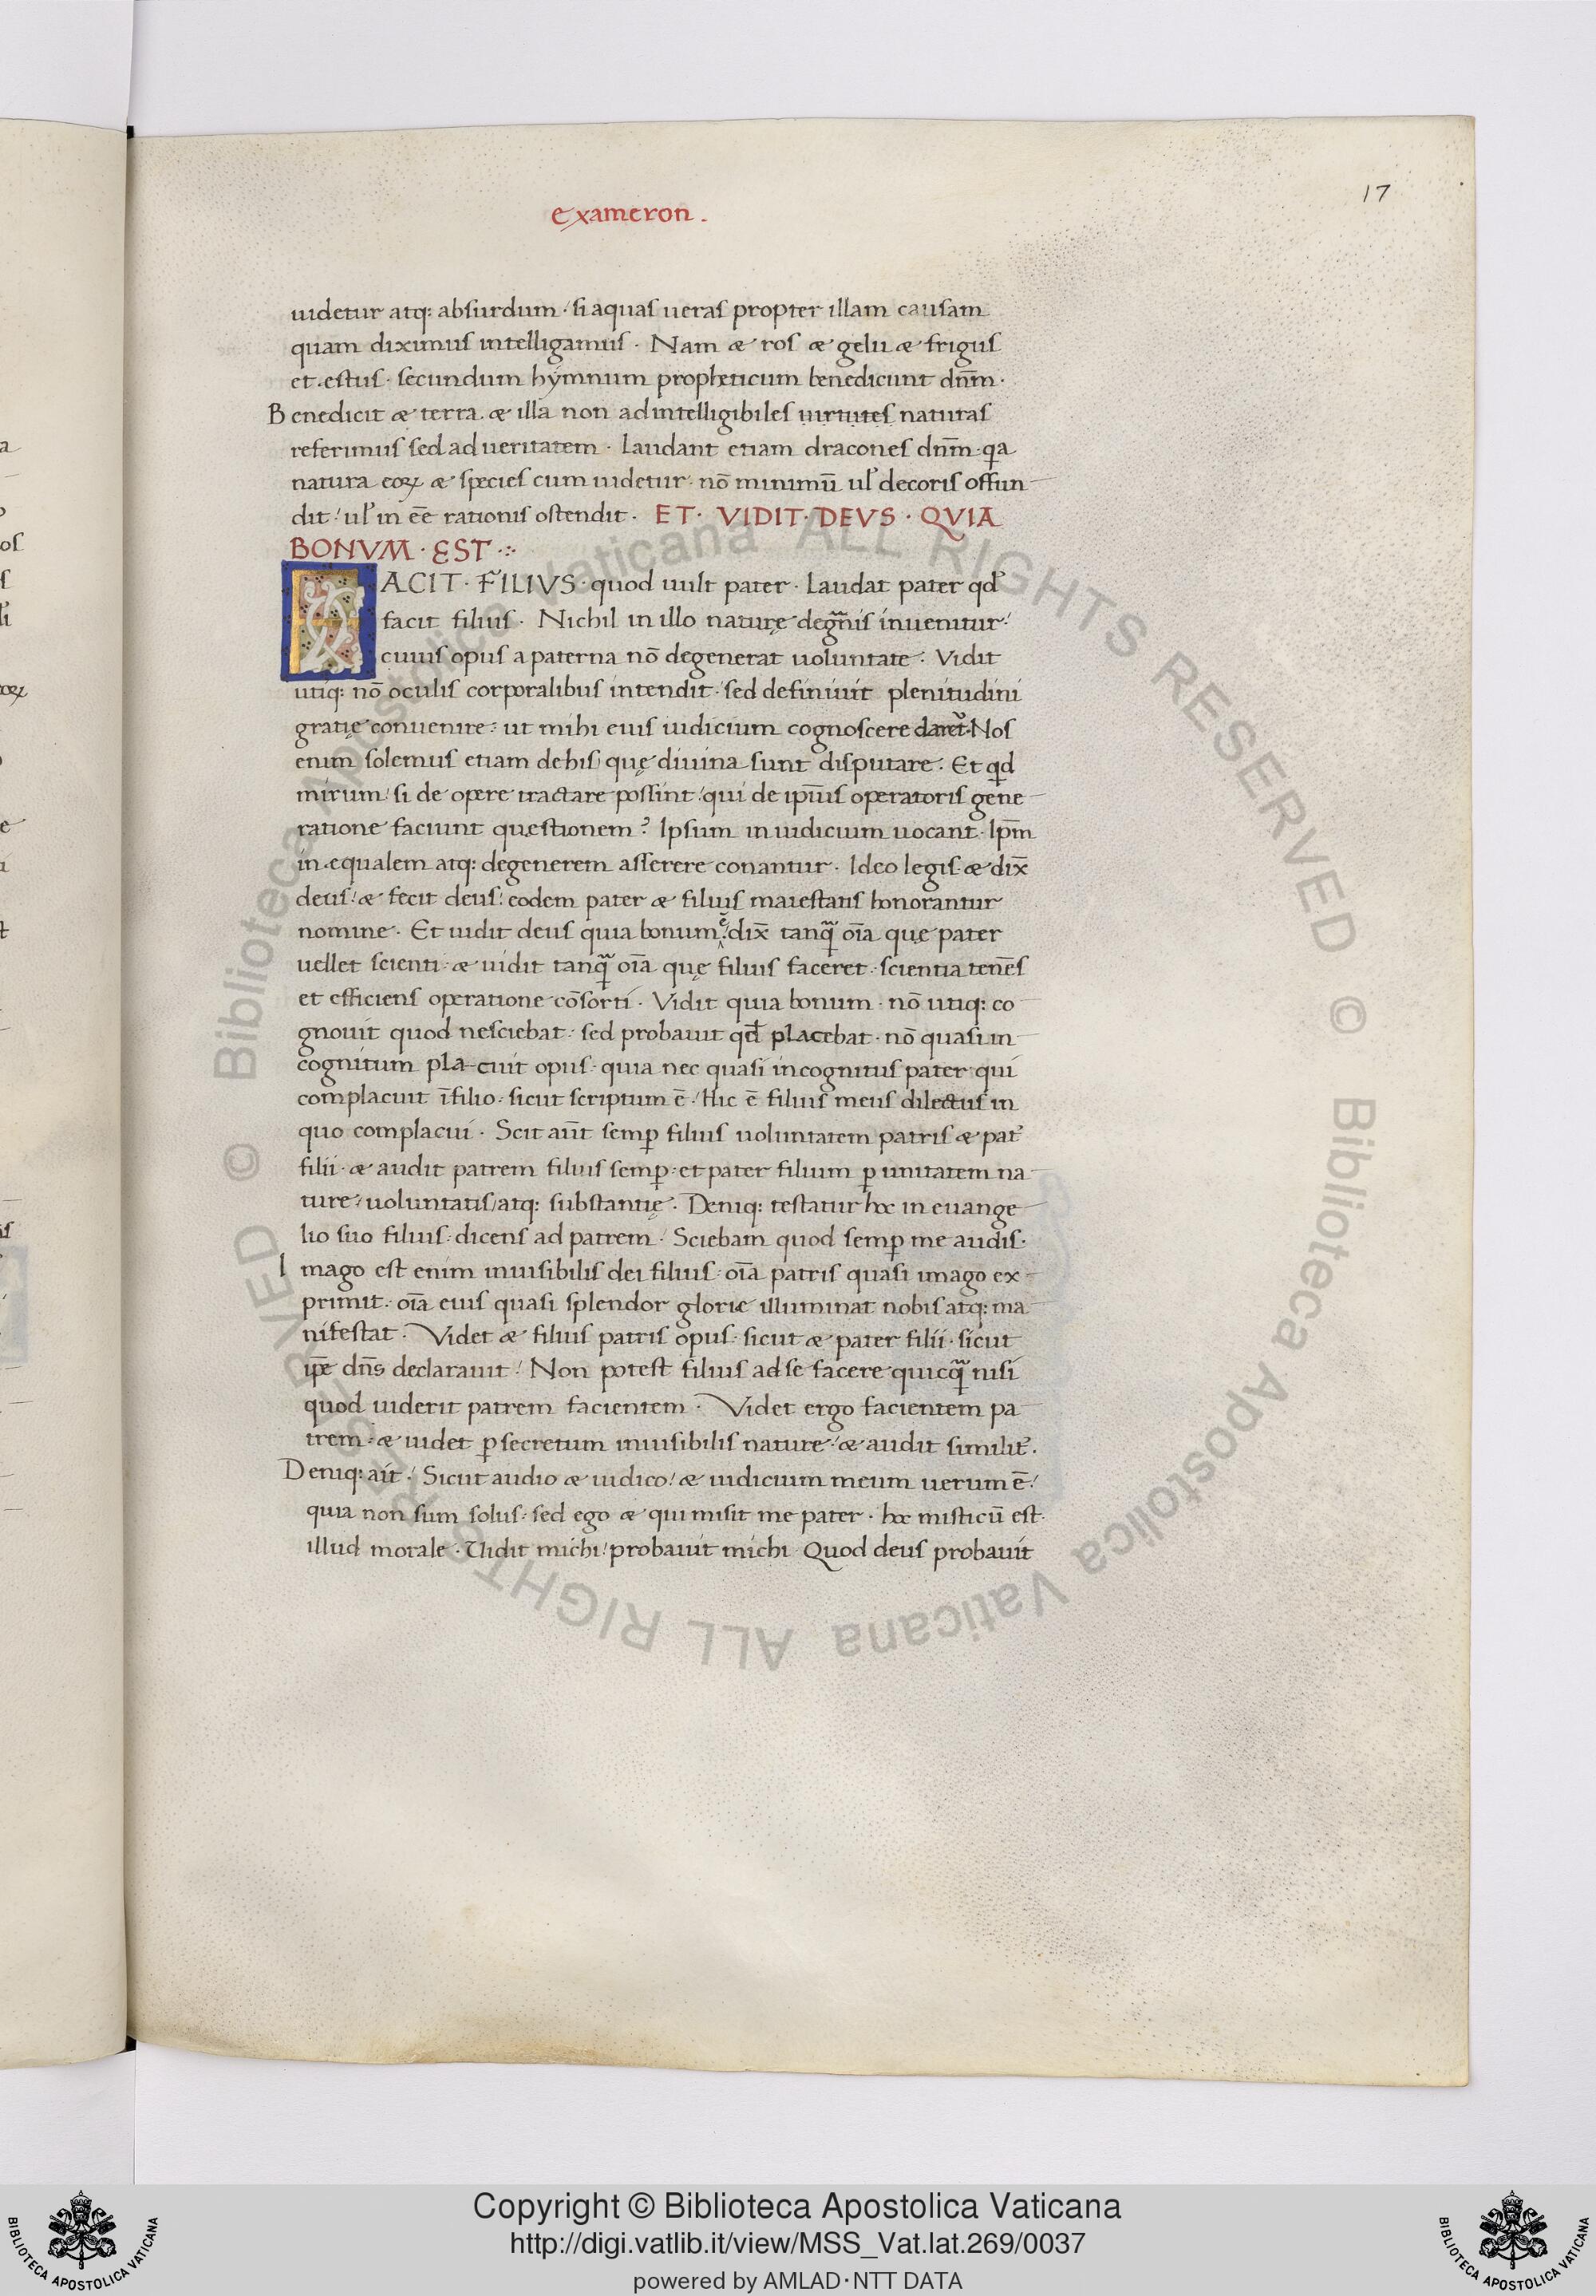 17
exameron.
uidetur atq: absurdum · si aquas ueras propter illam causam
quam diximus intelligamus · Nam & ros & gelu & frigus
et ęstus · secundum hýmnum propheticum benedicunt dnm̄ ·
Benedicit & terra · & illa non ad intelligibiles uirtutes naturas
referimus sed ad ueritatem · Laudant etiam dracones dnm̄ · qa
natura eoꝝ & species cum uidetur · nō minimū ul' decoris offun
dit / ul' in eē rationis ostendit · ET · VIDIT · DEVS · QVIA
BONVM · EST ·:·
FACIT · FILIVS · quod uult pater · Laudat pater qd'
facit filius · Nichil in illo naturę degn̄is inuenitur /
cuius opus a paterna nō degenerat uoluntate · Vidit
utiq: nō oculis corporalibus intendit · sed definiuit plenitudini
gratię conuenire : ut mihi eius iudicium cognoscere daret' · Nos
enim solemus etiam de his quę diuina sunt disputare · Et qd
mirum / si de opere tractare possint / qui de ipīus operatoris gene
ratione faciunt quęstionem ? Ipsum in iudicium uocant · Ipm̄
inęqualem atq: degenerem asserere conantur · Ideo legis · & dix̄
deus / & fecit deus / eodem pater & filius maiestatis honorantur
nomine · Et uidit deus quia bonum ē / dix̄ tanq̄ oīa quę pater
uellet scienti · & uidit tanq̄ oīa quę filius faceret · scientia tenēs
et efficiens operatione cōsorti · Vidit quia bonum · nō utiq: co
gnouit quod nesciebat · sed probauit qđ placebat · nō quasi in
cognitum pla-cuit opus · quia nec quasi incognitus pater qui
complacuit ī filio · sicut scriptum ē · Hic ē filius meus dilectus in
quo complacui · Scit aūt semꝑ filius uoluntatem patris & pat'
filii · & audit patrem filius semꝑ · et pater filium ꝑ unitatem na
ture / uoluntatis / atq: substantię · Deniq: testatur hoc in euange
lio suo filius · dicens ad patrem · Sciebam quod semꝑ me audis ·
Imago est enim inuisibilis dei filius · oīa patris quasi imago ex
primit · oīa eius quasi splendor glorię illuminat nobis atq: ma
nifestat · Videt & filius patris opus · sicut & pater filii · sicut
ipē dn̄s declarauit / Non potest filius ad se facere quicq̄ nisi
quod uiderit patrem facientem · Videt ergo facientem pa
trem · & uidet ꝑ secretum inuisibilis nature / & audit similit' ·
Deniq: ait / Sicut audio & iudico / & iudicium meum uerum ē /
quia non sum solus · sed ego & qui misit me pater · hoc misticū est ·
illud morale · Vidit michi / probauit michi Quod deus probauit
Copyright © Biblioteca Apostolica Vaticana
http://digi.vatlib.it/view/MSS_Vat.lat.269/0037
powered by AMLAD·NTT DATA
BIBLIOTECA APOSTOLICA VATICANA
BIBLIOTECA APOSTOLICA VATICANA
© Biblioteca Apostolica Vaticana ALL RIGHTS RESERVED © Biblioteca Apostolica Vaticana ALL RIGHTS RESERVED